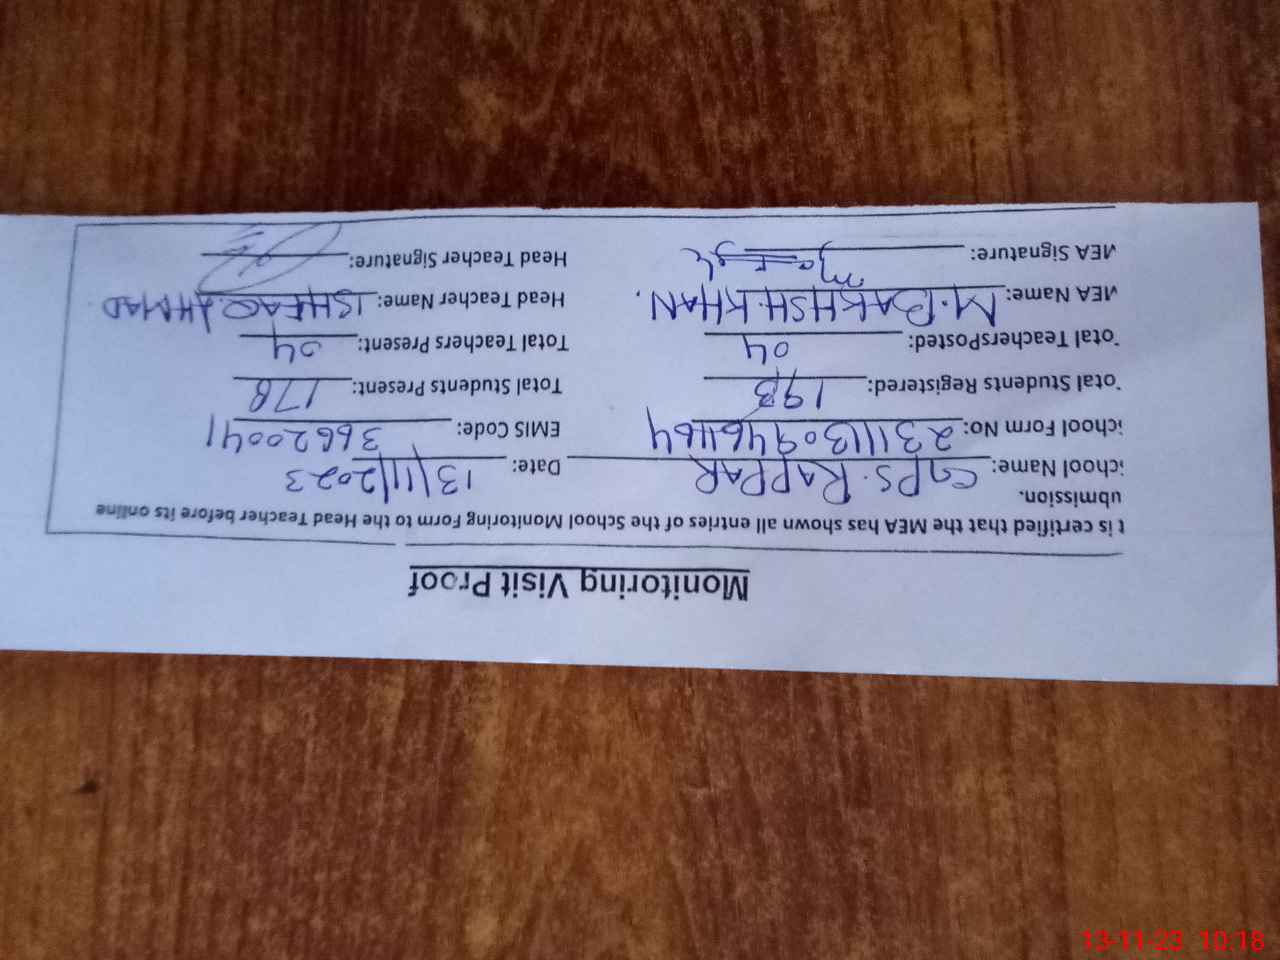 Monitoring Visit Proof
t is certified that the MEA has shown all entries of the School Monitoring Form to the Head Teacher before its online
ubmission.
ichool Name: GPS. RAPPAR Date: 13/11/2023
ichool Form No: 231113094641164 EMIS Code: 36620041
otal Students Registered: 193 Total Students Present: 178
otal TeachersPosted: 04 Total Teachers Present: 04
MEA Name: M. BAKHSH. KHAN. Head Teacher Name: ISHFAQ. AHMAD
MEA Signature: Head Teacher Signature:
13-11-23 10:18